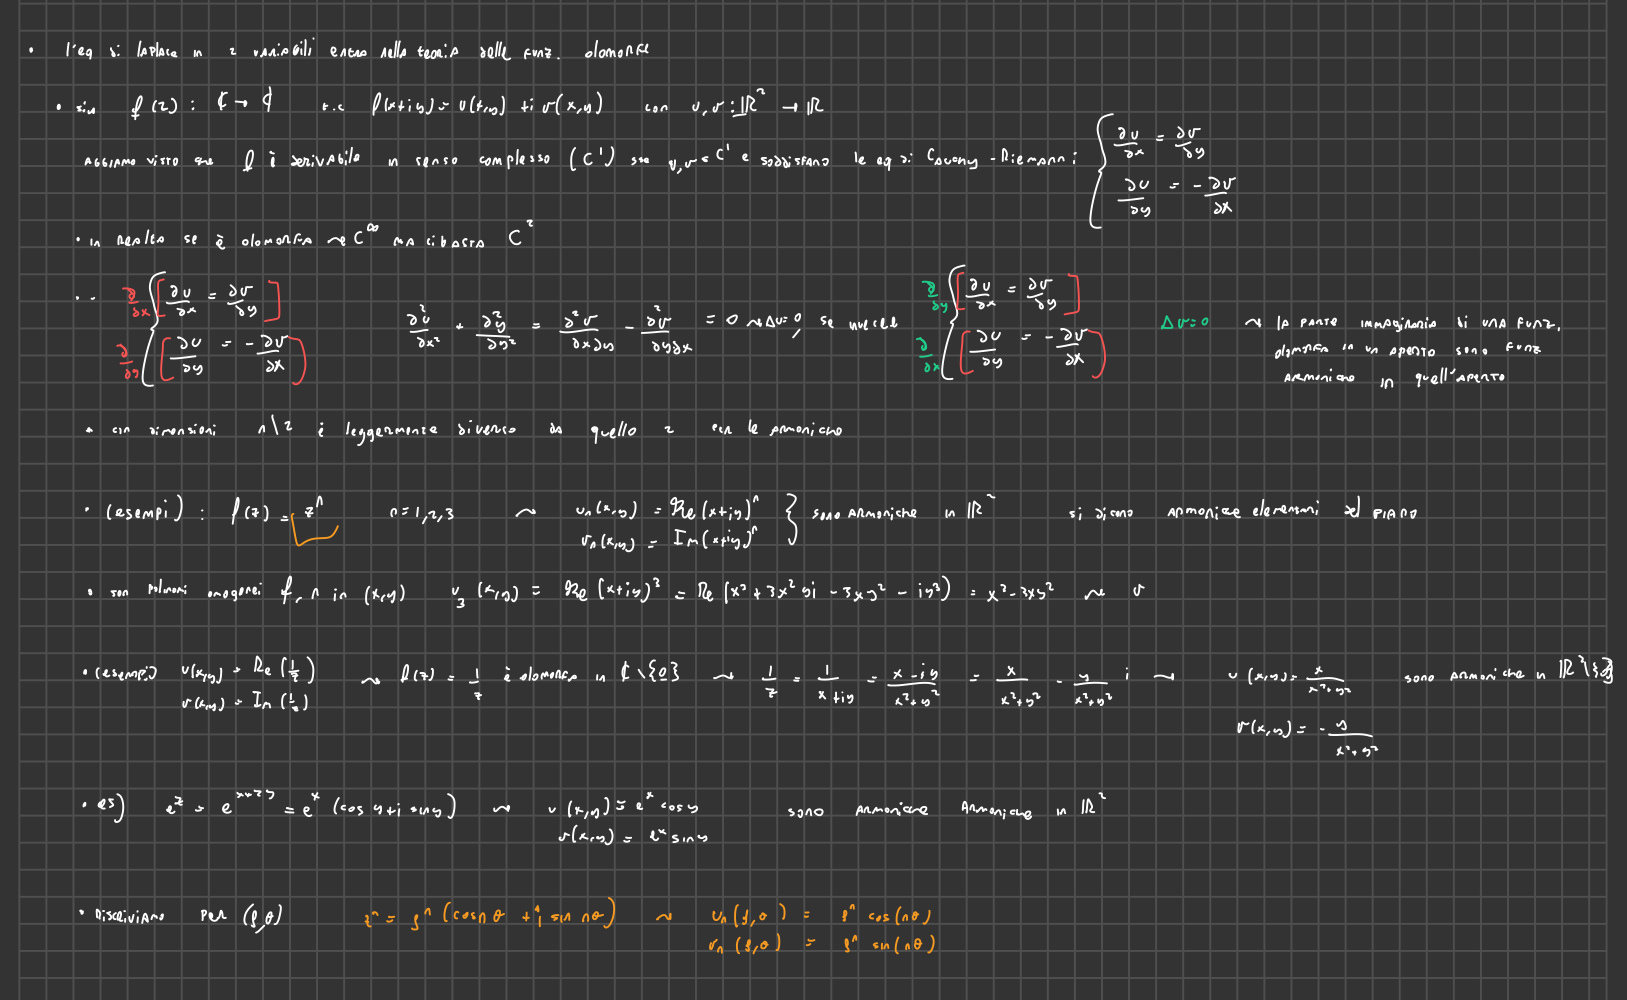 • l'eq di laplace in 2 variabili entra nella teoria delle funz. olomorfe
• sia f(z) : ℂ → ℂ t.c f(x+iy) = u(x,y) + i v(x,y) con u,v : ℝ² → ℝ
abbiamo visto che f è derivabile in senso complesso (C¹) sse u,v ∈ C¹ e soddisfano le eq di Cauchy-Riemann : { ∂u/∂x = ∂v/∂y
∂u/∂y = -∂v/∂x
• in realtà se è olomorfa ⇝ C^∞ ma ci basta C²
• ∂/∂x [∂u/∂x = ∂v/∂y]
∂/∂y [∂u/∂y = -∂v/∂x]
∂²u/∂x² + ∂²u/∂y² = ∂²v/∂x∂y - ∂²v/∂y∂x = 0 ⇝ Δu=0, se invece
∂/∂y [∂u/∂x = ∂v/∂y]
∂/∂x [∂u/∂y = -∂v/∂x]
Δv=0 ⇝ la parte immaginaria di una funz.
olomorfa in un aperto sono funz
armoniche in quell'aperto
• dimensioni n\2 è leggermente diverso da quello 2 per le armoniche
• (esempi) : f(z) = zⁿ n=1,2,3 ⇝ uₙ(x,y) = Re(x+iy)ⁿ } sono armoniche in ℝ² si dicono armoniche elementari del piano
vₙ(x,y) = Im(x+iy)ⁿ
• son polinomi omogenei f, n in (x,y) u₃(x,y) = Re(x+iy)³ = Re(x³+3x²yi-3xy²-iy³) = x³-3xy² ⇝ v
• (esempi) u(x,y) = Re(1/z) ⇝ f(z) = 1/z è olomorfa in ℂ\{0} ⇝ 1/z = 1/(x+iy) = (x-iy)/(x²+y²) = x/(x²+y²) - y/(x²+y²) i ⇝ u(x,y) = x/(x²+y²) sono armoniche in ℝ²\{0}
v(x,y) = Im(1/z)
v(x,y) = -y/(x²+y²)
• es) e^z = e^(x+iy) = e^x (cos y + i sin y) ⇝ u(x,y) = e^x cos y sono armoniche armoniche in ℝ²
v(x,y) = e^x sin y
• riscriviamo per (ρ,θ) zⁿ = ρⁿ (cos nθ + i sin nθ) ⇝ uₙ(ρ,θ) = ρⁿ cos(nθ)
vₙ(ρ,θ) = ρⁿ sin(nθ)